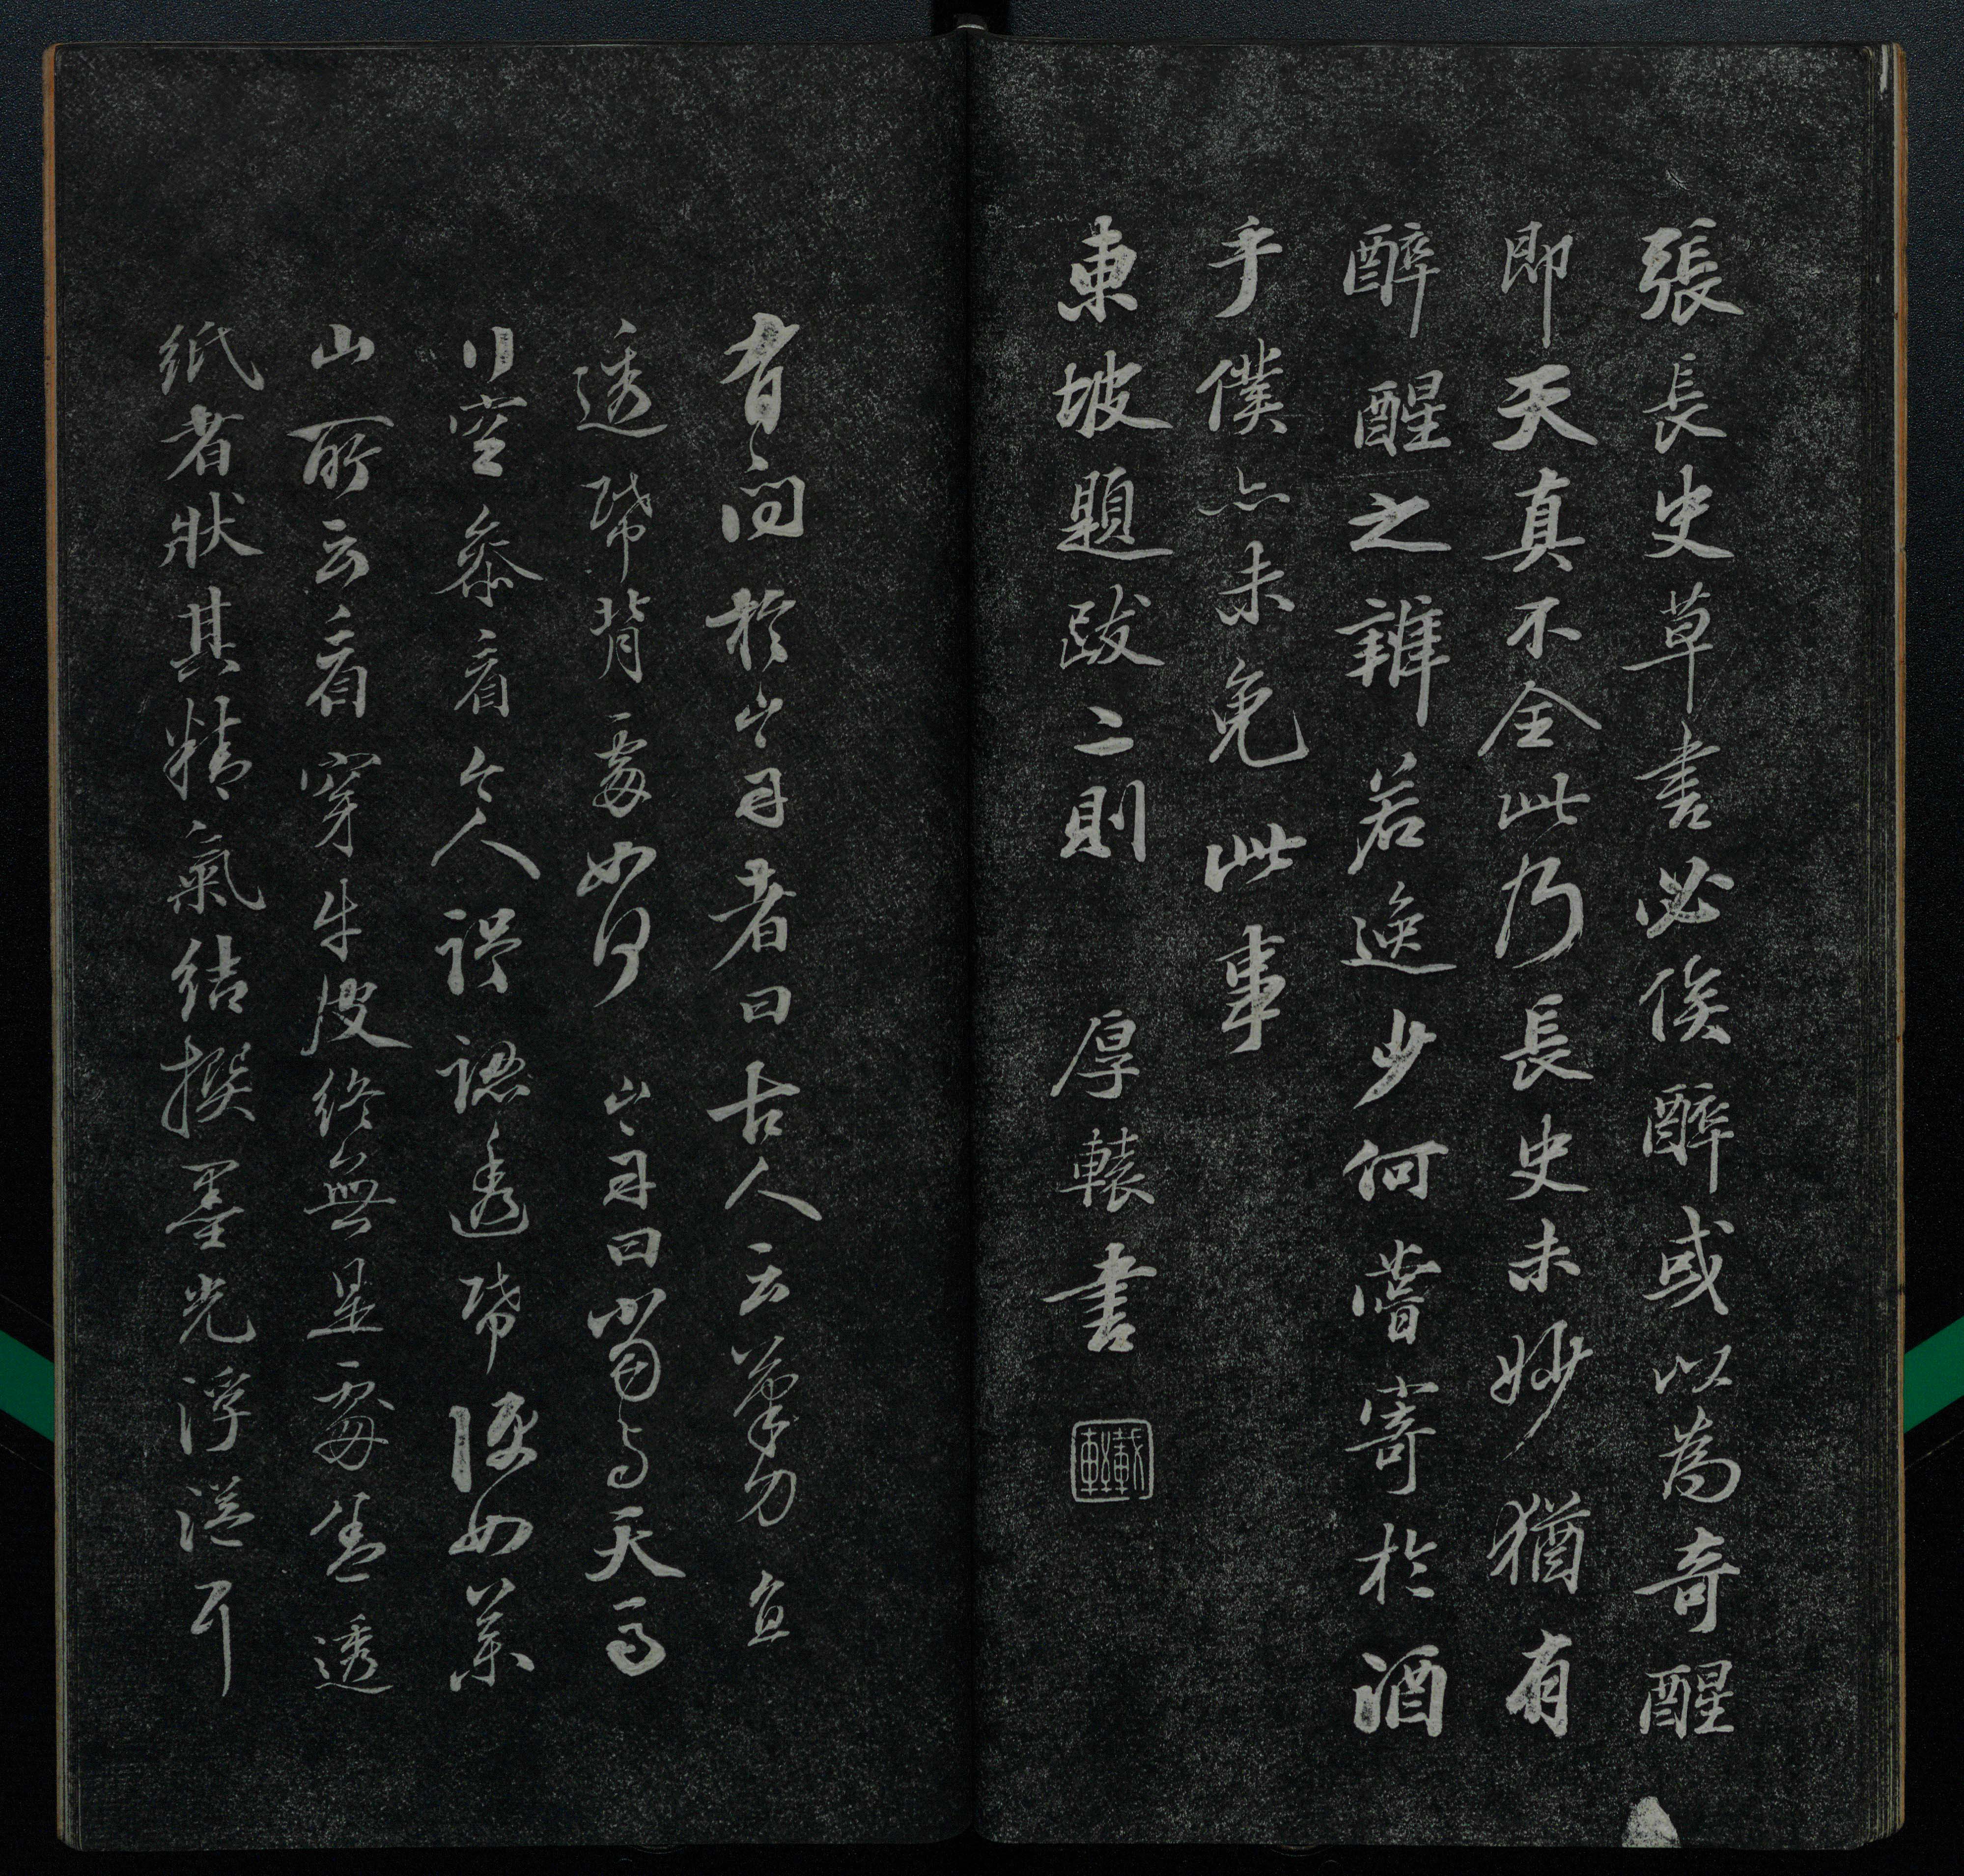 張長史草書必俟醉或以為奇醒
即天真不全此乃長史未妙猶有
醉醒之辨若逸少何嘗寄於酒
乎僕亦未免此事
東坡題跋二則 厚轅書
有問於山舟者曰古人云筆力直
透帋背處如何 山舟曰當与天馬
行空參看今人誤認透帋便如藥
山所云看穿牛皮終無是處蓋透
紙者狀其精氣結撰墨光浮溢耳